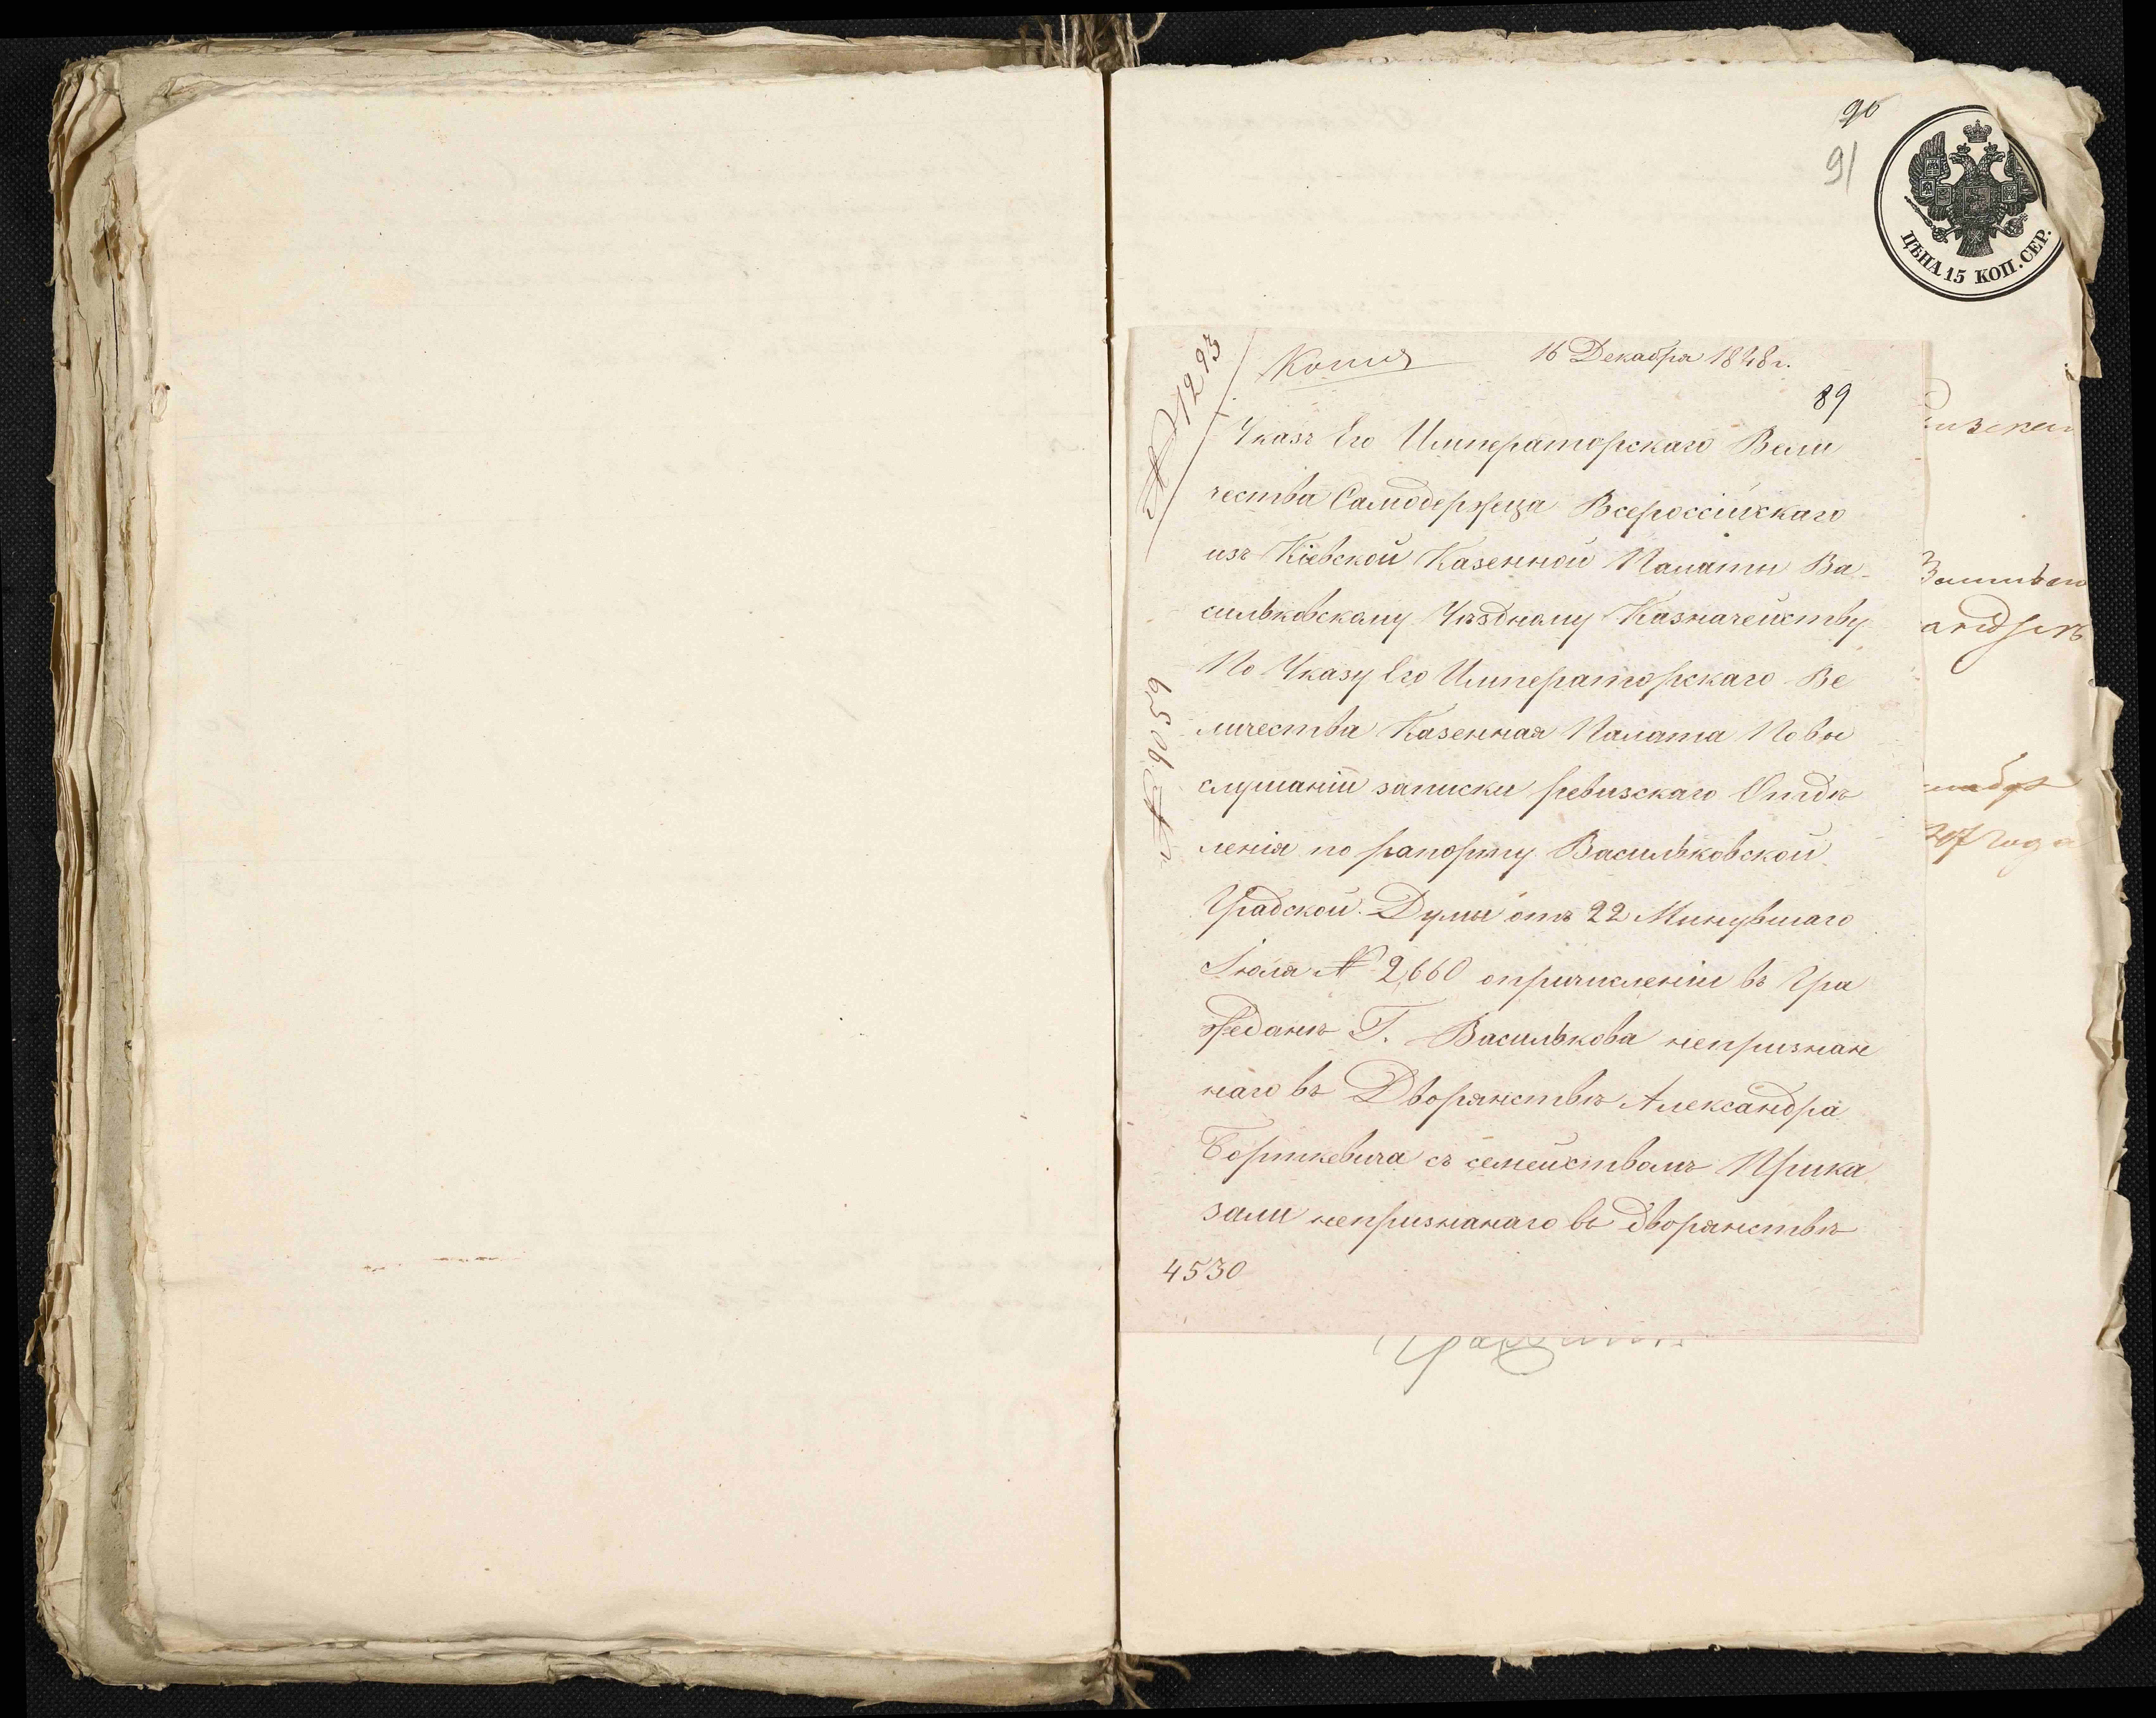 90
91
ЦѢНА 15 КОП. СЕР.
№ 1293
Копия
16 Декабря 1848 г.
89
Указъ Его Императорскаго Вели
чества Самодержца Всероссійскаго
изъ Кіевской Казенной Палаты Ва-
сильковскому Уѣздному Казначейству
По Указу Его Императорскаго Ве
личества Казенная Палата По вы
слушаніи записки ревизскаго Отдѣ
ленія по рапорту Васильковской
Градской Думы отъ 22 Минувшаго
Іюля № 2,660 опричисленіи въ Гра
жданѣ Г. Василькова непризнан
наго въ Дворянствѣ Александра
Борткевича съ семействомъ Прика
зали непризнанаго въ дворянствѣ
4530
года